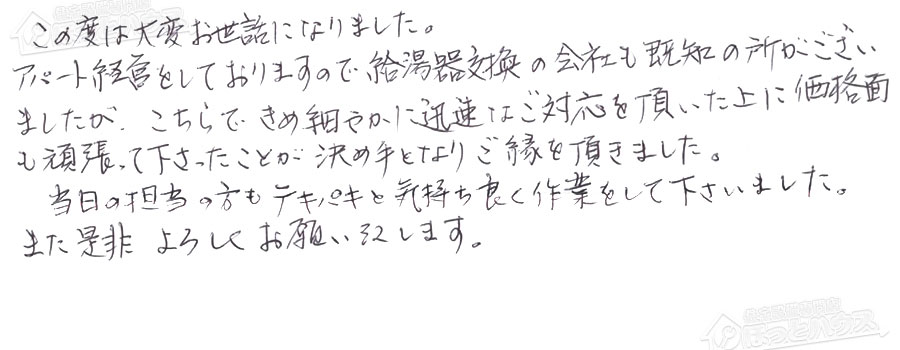 この度は大変お世話になりました。
アパート経営をしておりますので給湯器交換の会社も既知の所がござい
ましたが、こちらできめ細やかに迅速なご対応を頂いた上に価格面
も頑張って下さったことが決め手となりご縁を頂きました。
当日の担当の方もテキパキと気持ち良く作業をして下さいました。
また是非よろしくお願い致します。
ほっとハウス